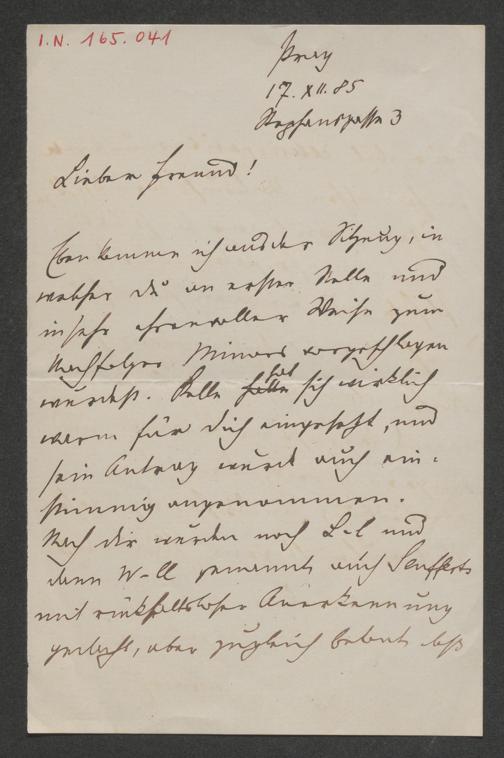 I.N. 165.041
Prag
17. XII. 85
Stephansgasse 3
Lieber Freund!
Eben komme ich aus der Sitzung, in
welcher du an erster Stelle und
in sehr ehrenvoller Weise zum
Nachfolger Minors vorgeschlagen
wurdest. Kelle hatte hat sich wirklich
warm für dich eingesetzt, und
sein Antrag wurde auch ein-
stimmig angenommen.
Nach dir wurden noch L-l und
dann W-ll genannt auch Seufferts
mit rückhaltloser Anerkennung
gedacht, aber zugleich betont daß